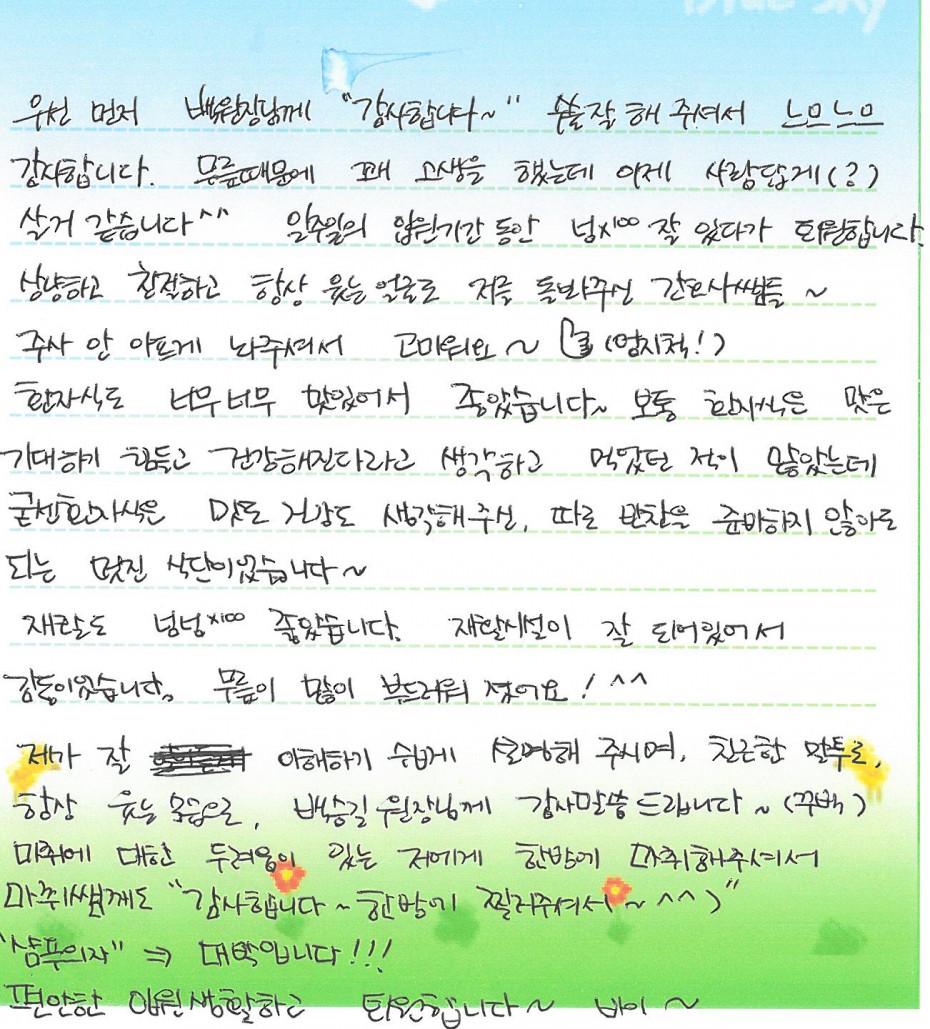 Blue Sky
우선 먼저 백원장님께 "감사합니다~" 수술 잘 해 주셔서 느므느므
감사합니다. 무릎때문에 꽤 고생을 했는데 이제 사람답게(?)
살거 같습니다^^ 일주일의 입원기간 동안 넘x100 잘 있다가 퇴원합니다.
상냥하고 친절하고 항상 웃는 얼굴로 저를 돌봐주신 간호사쌤들 ~
주사 안 아프게 놔주셔서 고마워요 ~ (엄지척!)
환자식도 너무너무 맛있어서 좋았습니다~ 보통 환자식은 맛은
기대하기 힘들고 건강해진다라고 생각하고 먹었던 적이 많았는데
굳센환자식은 맛도 건강도 생각해주신, 따로 반찬을 준비하지 않아도
되는 멋진 식단이었습니다~
재활도 넘넘x100 좋았습니다. 재활시설이 잘 되어있어서
감동이었습니다. 무릎이 많이 부드러워 졌어요! ^^
제가 잘 이해하기 쉽게 설명해 주시며, 친근한 말투로,
항상 웃는 모습으로, 백승길 원장님께 감사말씀 드립니다~ (꾸벅)
마취에 대한 두려움이 있는 저에게 한방에 마취해주셔서
마취쌤께도 "감사합니다~ 한방에 찔러주셔서~^^)"
"샴푸의자" ⇒ 대박입니다!!!
편안한 입원생활하고 퇴원합니다~ 바이~